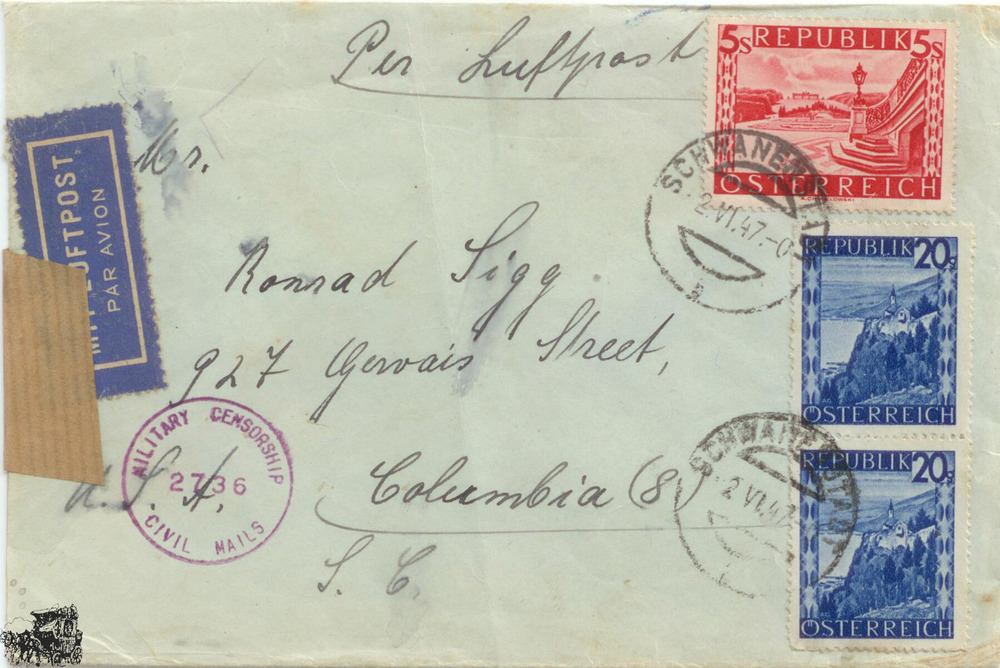 Per Luftpost
5s REPUBLIK 5s
ÖSTERREICH
MIT LUFTPOST
PAR AVION
Mr.
Konrad Sigg
927 Gervais Street,
Columbia (8)
S. C.
U.S.A.
MILITARY CENSORSHIP
2736
CIVIL MAILS
2.VI.47
REPUBLIK 20g
ÖSTERREICH
2 VI.47
REPUBLIK 20g
ÖSTERREICH